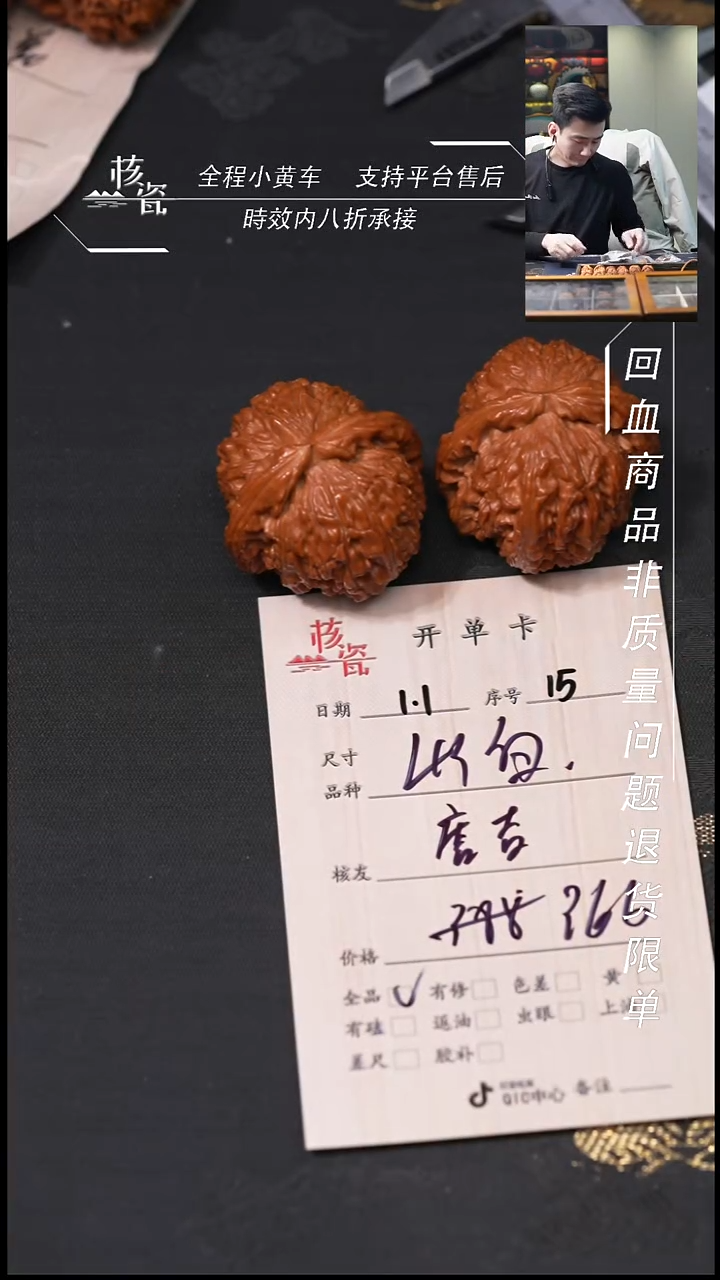 核瓷
全程小黄车 支持平台售后
時效内八折承接
回血商品非质量问题退货限单
核瓷
开单卡
日期 1.1 序号 15
尺寸
品种
核友 唐吉
价格
全品 有修 色差 黄
有磕 返油 虫眼 上油
差尺 胶补
QIC中心 备注